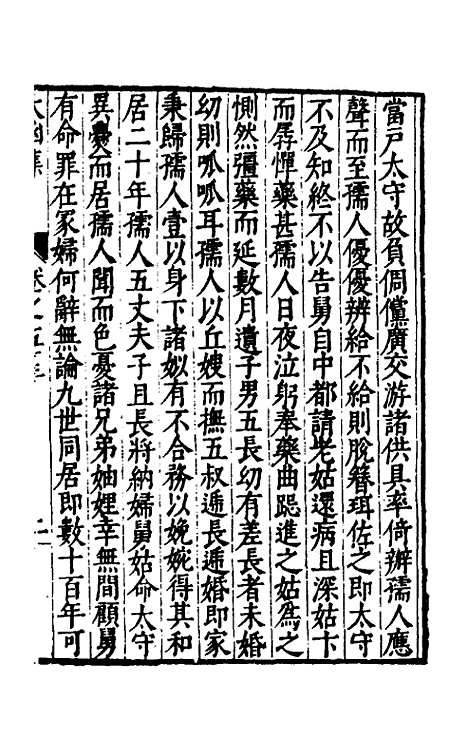 當戸太守故負倜儻廣交游諸供具率倚辦孺人應
聲而至孺人優優辨給不給則脫簪珥佐之即太守
不及知終不以告舅自中都請老姑還病且深姑卞
而孱憚藥甚孺人日夜泣躬奉藥曲跽進之姑爲之
惻然彊藥而延數月遺子男五長幼有差長者未婚
幼則呱呱耳孺人以丘嫂而撫五叔遞長遞婚即家
秉歸孺人壹以身下諸姒有不合務以婉婉得其和
居二十年孺人五丈夫子且長將納婦舅姑命太守
異爨而居孺人聞而色憂諸兄弟妯娌幸無間顧舅
有命罪在冢婦何辭無論九世同居即數十百年可
太函集 卷之五十三 二